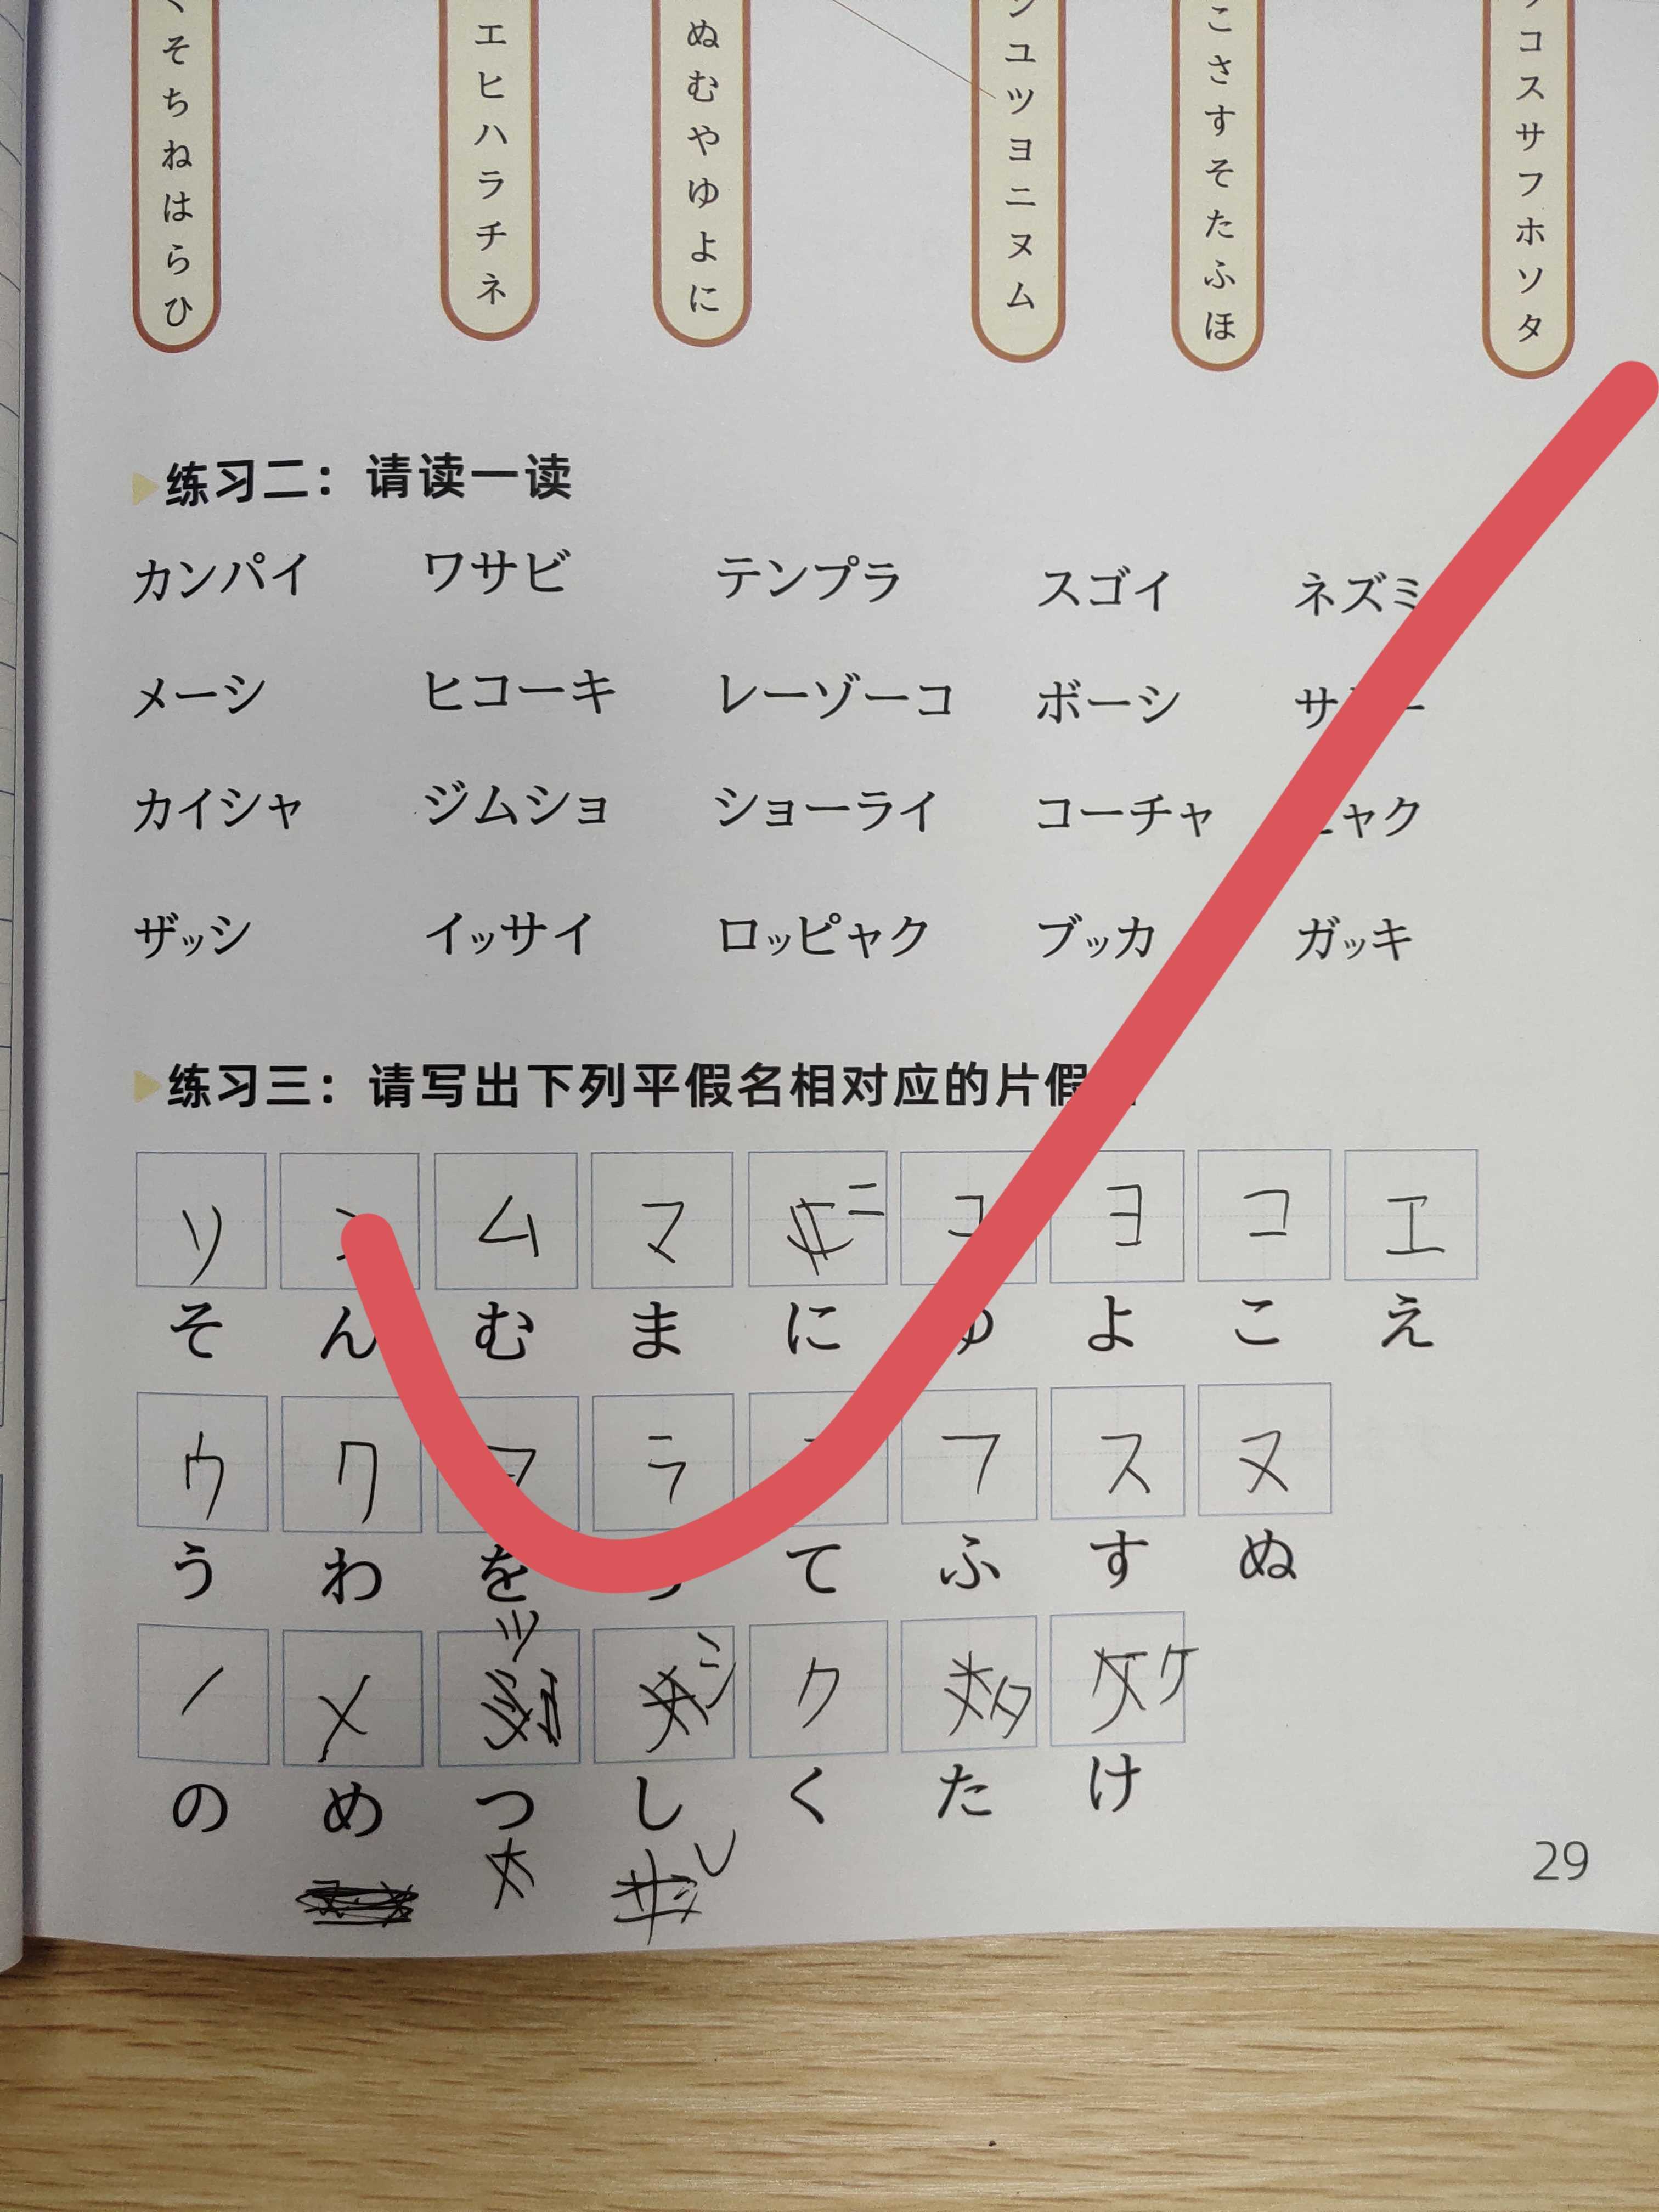 そちねはらひ
エヒハラチネ
ぬむやゆよに
ユツヨニヌム
こさすそたふほ
コスサフホソタ
练习二：请读一读
カンパイ ワサビ テンプラ スゴイ ネズミ
メーシ ヒコーキ レーゾーコ ボーシ
カイシャ ジムショ ショーライ コーチャ
ザッシ イッサイ ロッピャク ブッカ ガッキ
练习三：请写出下列平假名相对应的片假
ソ ム マ ニ ヨ コ エ
そ ん む ま に ゆ よ こ え
ウ ワ ラ フ ス ヌ
う わ を て ふ す ぬ
ツ
ノ メ シ ク タ ケ
の め つ し く た け
レ
29